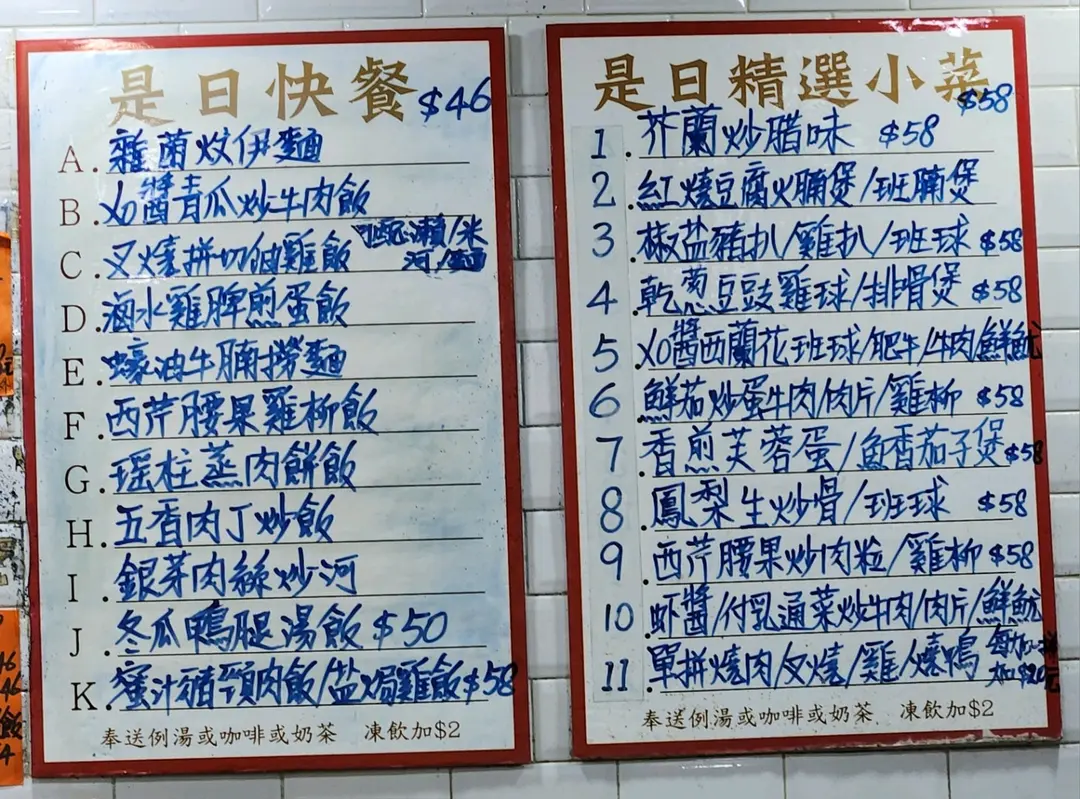 是日快餐 $46
A. 雜菌炆伊麵
B. XO醬青瓜炒牛肉飯
C. 叉燒拼切油雞飯 配瀨/米
河/麵
D. 滷水雞脾煎蛋飯
E. 蠔油牛腩撈麵
F. 西芹腰果雞柳飯
G. 瑶柱蒸肉餅飯
H. 五香肉丁炒飯
I. 銀芽肉絲炒河
J. 冬瓜鴨腿湯飯 $50
K. 蜜汁豬頸肉飯/盐焗雞飯 $58
奉送例湯或咖啡或奶茶 凍飲加$2
是日精選小菜 $58
1. 芥蘭炒腊味 $58
2. 紅燒豆腐火腩煲/班腩煲
3. 椒盐豬扒/雞扒/班球 $58
4. 乾葱豆豉雞球/排骨煲 $58
5. XO醬西蘭花班球/肥牛/牛肉/鮮魷
6. 鮮茄炒蛋牛肉/肉片/雞柳 $58
7. 香煎芙蓉蛋/魚香茄子煲 $58
8. 鳳梨生炒骨/班球 $58
9. 西芹腰果炒肉粒/雞柳 $58
10. 虾醬/付乳通菜炒牛肉/肉片/鮮魷
11. 單拼燒肉/叉燒/雞/燒鴨 每加一拼
加$20元
奉送例湯或咖啡或奶茶 凍飲加$2